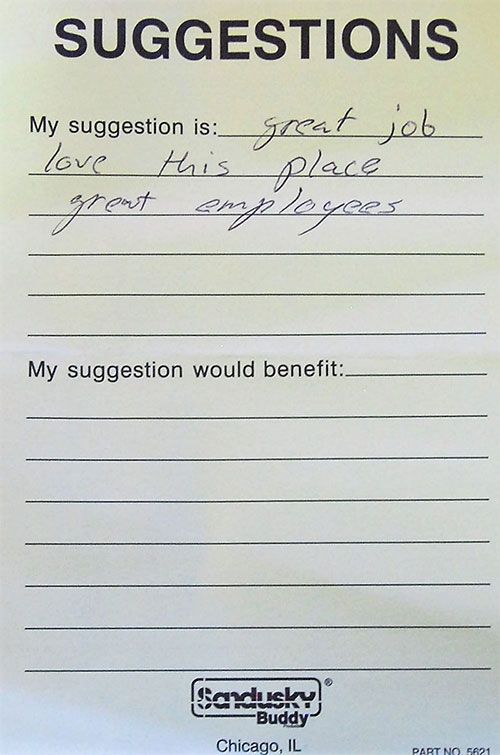 SUGGESTIONS
My suggestion is: great job
love this place
great employees
My suggestion would benefit:
Sandusky ®
Buddy
Chicago, IL
PART NO. 5621